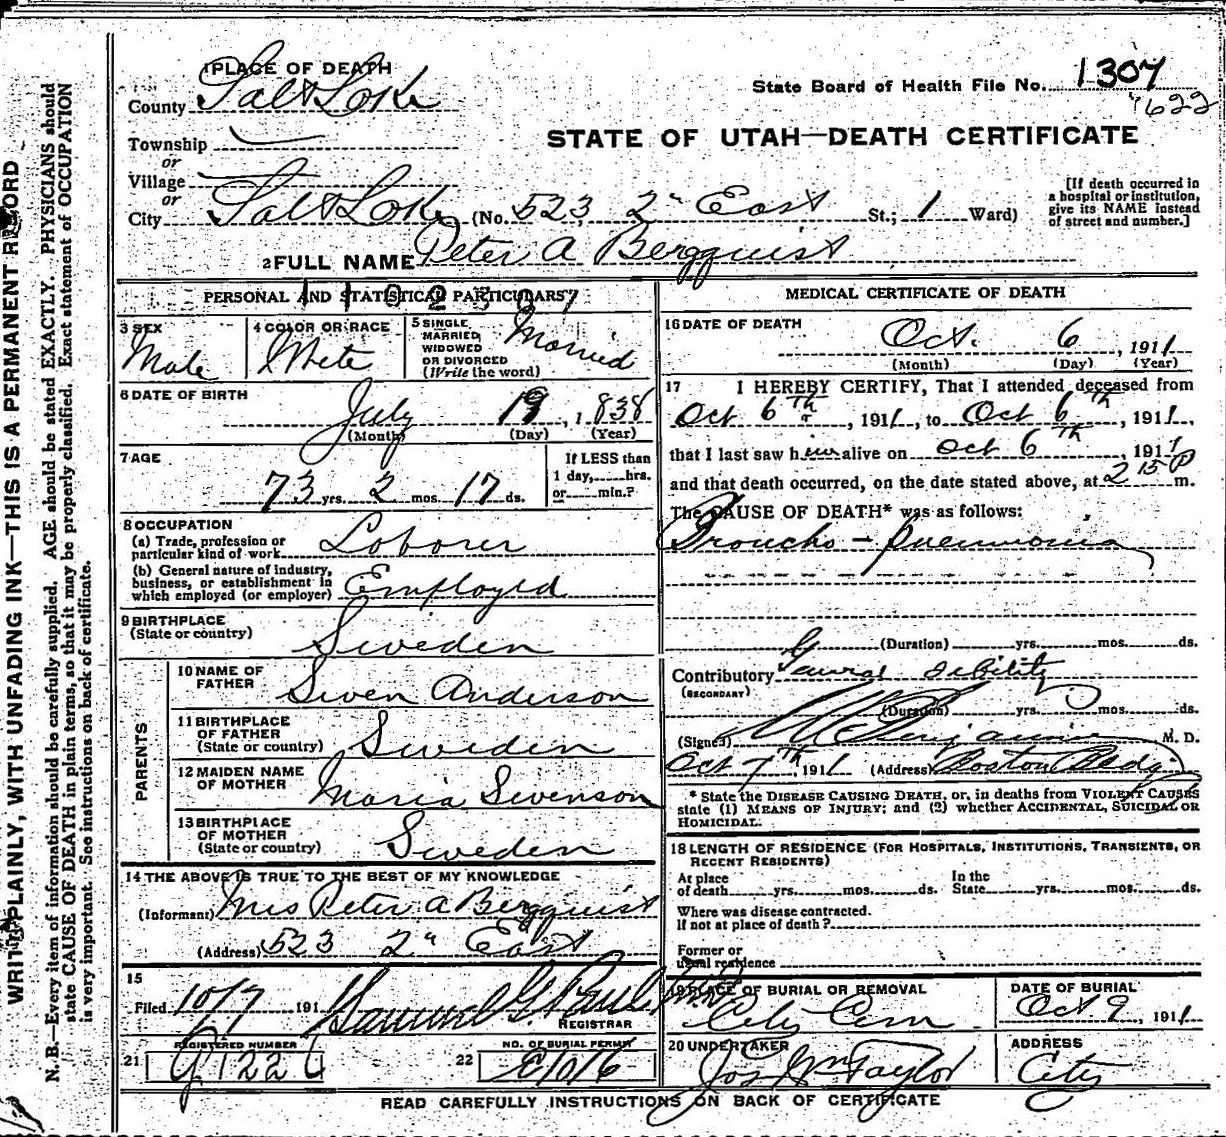 WRITE PLAINLY, WITH UNFADING INK—THIS IS A PERMANENT RECORD
N. B.—Every item of information should be carefully supplied. AGE should be stated EXACTLY. PHYSICIANS should
state CAUSE OF DEATH in plain terms, so that it may be properly classified. Exact statement of OCCUPATION
is very important. See instructions on back of certificate.
1 PLACE OF DEATH
County Salt Lake
State Board of Health File No. 1307
1622
Township
or
Village
or
STATE OF UTAH—DEATH CERTIFICATE
City Salt Lake (No. 523 2" East St.; 1 Ward)
[If death occurred in
a hospital or institution,
give its NAME instead
of street and number.]
2 FULL NAME Peter A Bergquist
PERSONAL AND STATISTICAL PARTICULARS
3 SEX
Male
4 COLOR OR RACE
White
5 SINGLE
MARRIED,
WIDOWED
OR DIVORCED
(Write the word)
Married
6 DATE OF BIRTH
July 19, 1838
(Month) (Day) (Year)
7 AGE
73 yrs. 2 mos. 17 ds.
If LESS than
1 day, hrs.
or min.?
8 OCCUPATION
(a) Trade, profession or
particular kind of work Laborer
(b) General nature of industry,
business, or establishment in
which employed (or employer) Employed
9 BIRTHPLACE
(State or country) Sweden
PARENTS
10 NAME OF
FATHER Swen Anderson
11 BIRTHPLACE
OF FATHER
(State or country) Sweden
12 MAIDEN NAME
OF MOTHER Maria Swenson
13 BIRTHPLACE
OF MOTHER
(State or country) Sweden
14 THE ABOVE IS TRUE TO THE BEST OF MY KNOWLEDGE
(Informant) Mrs Peter A Bergquist
(Address) 523 2" East
15
Filed 10/7 191 Samuel G. Paul
REGISTRAR
REGISTERED NUMBER
21
NO. OF BURIAL PERMIT
22
MEDICAL CERTIFICATE OF DEATH
16 DATE OF DEATH
Oct. 6, 1911
(Month) (Day) (Year)
17 I HEREBY CERTIFY, That I attended deceased from
Oct 6th, 1911, to Oct 6th, 1911,
that I last saw him alive on Oct 6th, 1911
and that death occurred, on the date stated above, at 2 15 P m.
The CAUSE OF DEATH* was as follows:
Broncho-pneumonia
(Duration) yrs. mos. ds.
Contributory General debility
(SECONDARY)
(Duration) yrs. mos. ds.
(Signed) Benjamin M. D.
Oct 7th, 1911 (Address) Boston Bldg
* State the DISEASE CAUSING DEATH, or, in deaths from VIOLENT CAUSES
state (1) MEANS OF INJURY; and (2) whether ACCIDENTAL, SUICIDAL OR
HOMICIDAL.
18 LENGTH OF RESIDENCE (FOR HOSPITALS, INSTITUTIONS, TRANSIENTS, OR
RECENT RESIDENTS)
At place
of death yrs. mos. ds.
In the
State yrs. mos. ds.
Where was disease contracted.
If not at place of death?
Former or
usual residence
19 PLACE OF BURIAL OR REMOVAL
City Cem
DATE OF BURIAL
Oct 9, 1911
20 UNDERTAKER
Jos Wm Taylor
ADDRESS
City
READ CAREFULLY INSTRUCTIONS ON BACK OF CERTIFICATE